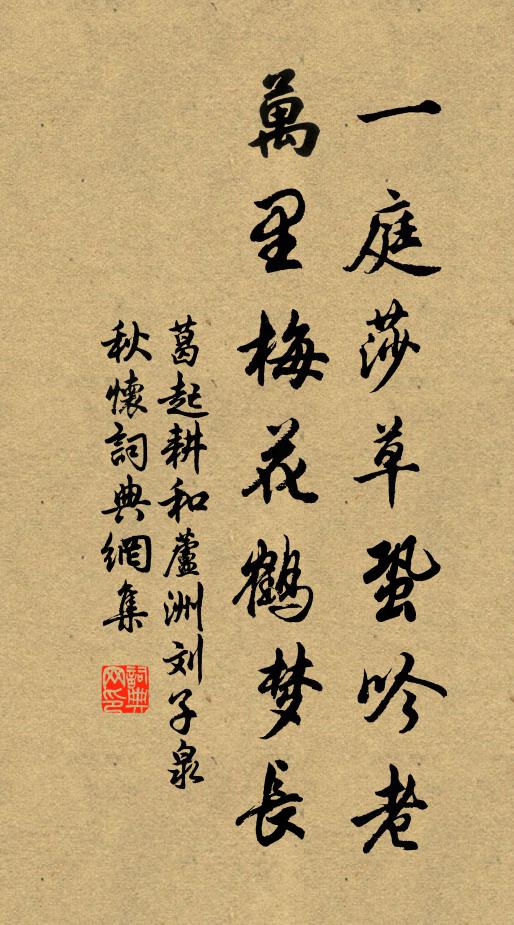 一庭莎草蛩吟老
萬里梅花鶴梦長
葛起耕和蘆洲刘子泉
秋懷詞典網集
詞典网印